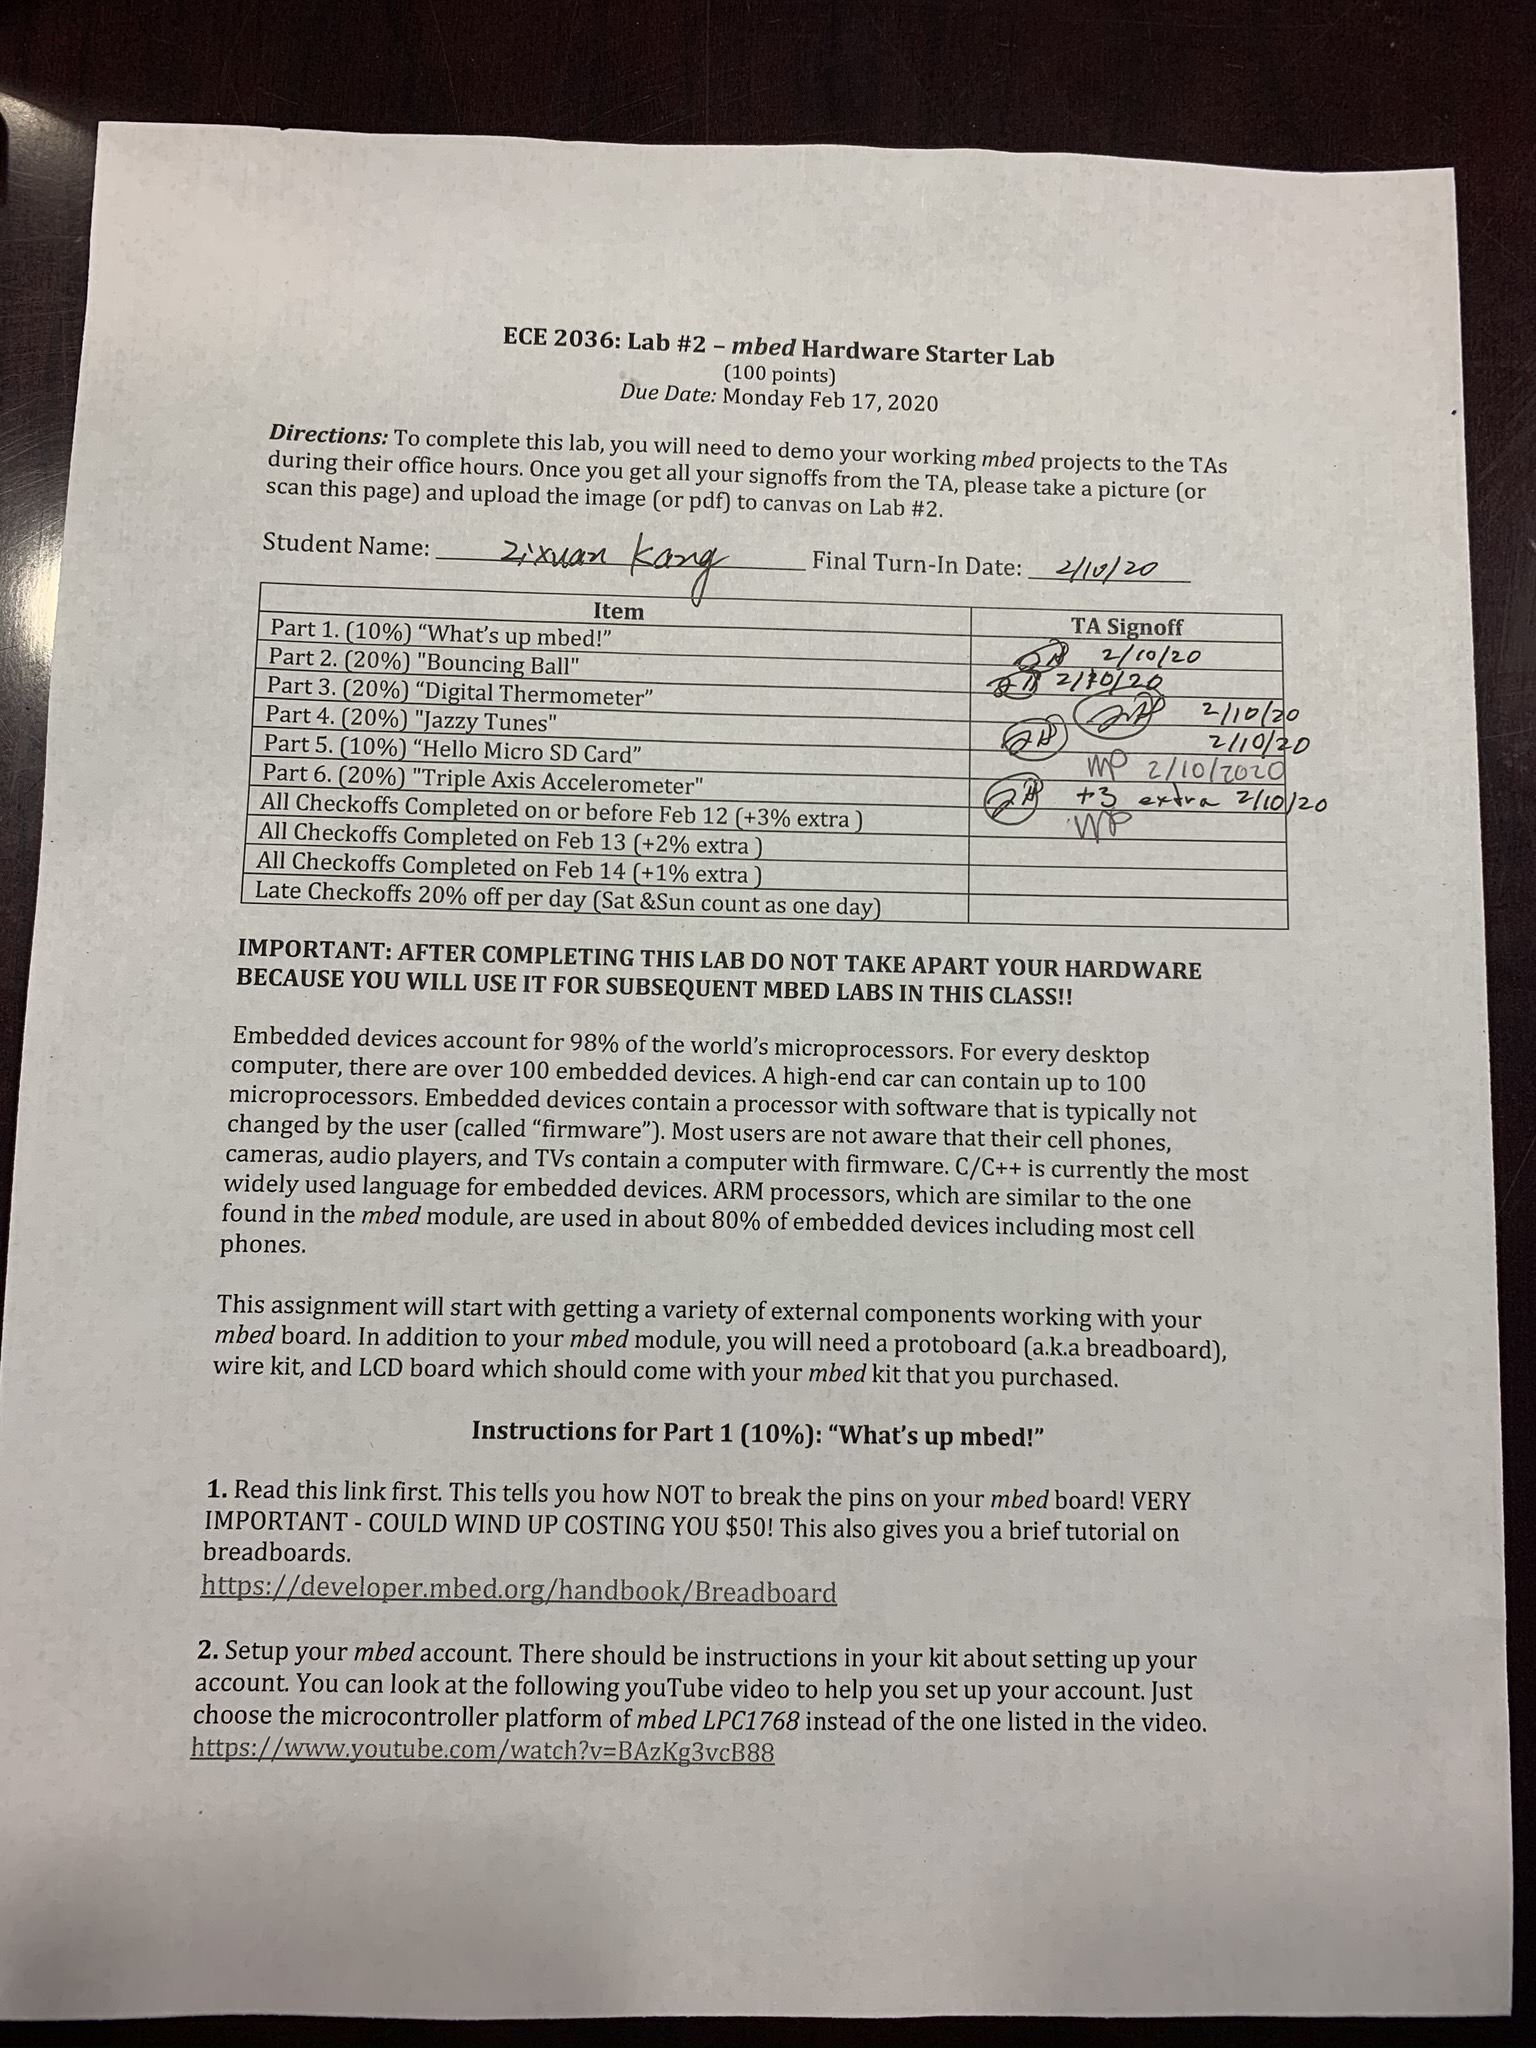 ECE 2036: Lab #2 – mbed Hardware Starter Lab
(100 points)
Due Date: Monday Feb 17, 2020
Directions: To complete this lab, you will need to demo your working mbed projects to the TAs
during their office hours. Once you get all your signoffs from the TA, please take a picture (or
scan this page) and upload the image (or pdf) to canvas on Lab #2.
Student Name: Zixuan Kang Final Turn-In Date: 2/10/20
Item TA Signoff
Part 1. (10%) “What’s up mbed!” 2/10/20
Part 2. (20%) "Bouncing Ball" 2/10/20
Part 3. (20%) “Digital Thermometer” 2/10/20
Part 4. (20%) "Jazzy Tunes" 2/10/20
Part 5. (10%) “Hello Micro SD Card” MP 2/10/2020
Part 6. (20%) "Triple Axis Accelerometer" +3 extra 2/10/20
All Checkoffs Completed on or before Feb 12 (+3% extra ) MP
All Checkoffs Completed on Feb 13 (+2% extra )
All Checkoffs Completed on Feb 14 (+1% extra )
Late Checkoffs 20% off per day (Sat &Sun count as one day)
IMPORTANT: AFTER COMPLETING THIS LAB DO NOT TAKE APART YOUR HARDWARE
BECAUSE YOU WILL USE IT FOR SUBSEQUENT MBED LABS IN THIS CLASS!!
Embedded devices account for 98% of the world’s microprocessors. For every desktop
computer, there are over 100 embedded devices. A high-end car can contain up to 100
microprocessors. Embedded devices contain a processor with software that is typically not
changed by the user (called “firmware”). Most users are not aware that their cell phones,
cameras, audio players, and TVs contain a computer with firmware. C/C++ is currently the most
widely used language for embedded devices. ARM processors, which are similar to the one
found in the mbed module, are used in about 80% of embedded devices including most cell
phones.
This assignment will start with getting a variety of external components working with your
mbed board. In addition to your mbed module, you will need a protoboard (a.k.a breadboard),
wire kit, and LCD board which should come with your mbed kit that you purchased.
Instructions for Part 1 (10%): “What’s up mbed!”
1. Read this link first. This tells you how NOT to break the pins on your mbed board! VERY
IMPORTANT - COULD WIND UP COSTING YOU $50! This also gives you a brief tutorial on
breadboards.
https://developer.mbed.org/handbook/Breadboard
2. Setup your mbed account. There should be instructions in your kit about setting up your
account. You can look at the following youTube video to help you set up your account. Just
choose the microcontroller platform of mbed LPC1768 instead of the one listed in the video.
https://www.youtube.com/watch?v=BAzKg3vcB88